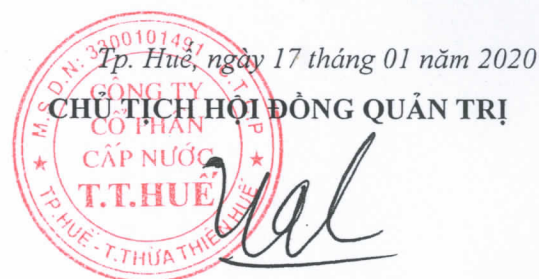 Tp. Huế, ngày 17 tháng 01 năm 2020
CHỦ TỊCH HỘI ĐỒNG QUẢN TRỊ
M.S.D.N: 3300101491 - C.T.C.P
CÔNG TY
CỔ PHẦN
CẤP NƯỚC
T.T.HUẾ
TP.HUẾ - T.THỪA THIÊN HUẾ